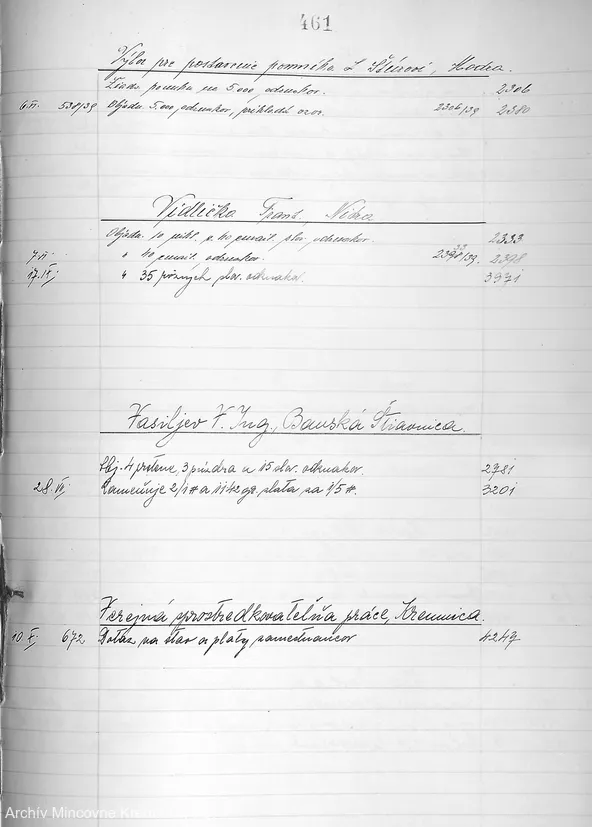 461
Výbor pre postavenie pomníka Ľ. Štúrovi, Modra.
Žiada ponuku na 5.000 odznakov. 2306
6.VI. 530/39 Objedn. 5.000 odznakov, prikladá vzor. 2306/39 2380
Vidlička Frant., Nitra
Objedn. 10 40 smalt. slov. odznakov. 2333
7.VI. " 40 smalt. odznakov. 2398
17.IX. " 35 slov. odznakov. 3971
Vasiljev V. Ing., Banská Štiavnica.
Obj. 4 prstene, 3 púzdra a 15 slov. odznakov. 2781
28.VI. Zameňuje 2/1 # a 1142 gr. zlata za 1/5 #. 3201
Verejná sprostredkovateľňa práce, Kremnica.
10.X. 672 Dotaz na stav a platy zamestnancov 4247
Archív Mincovne